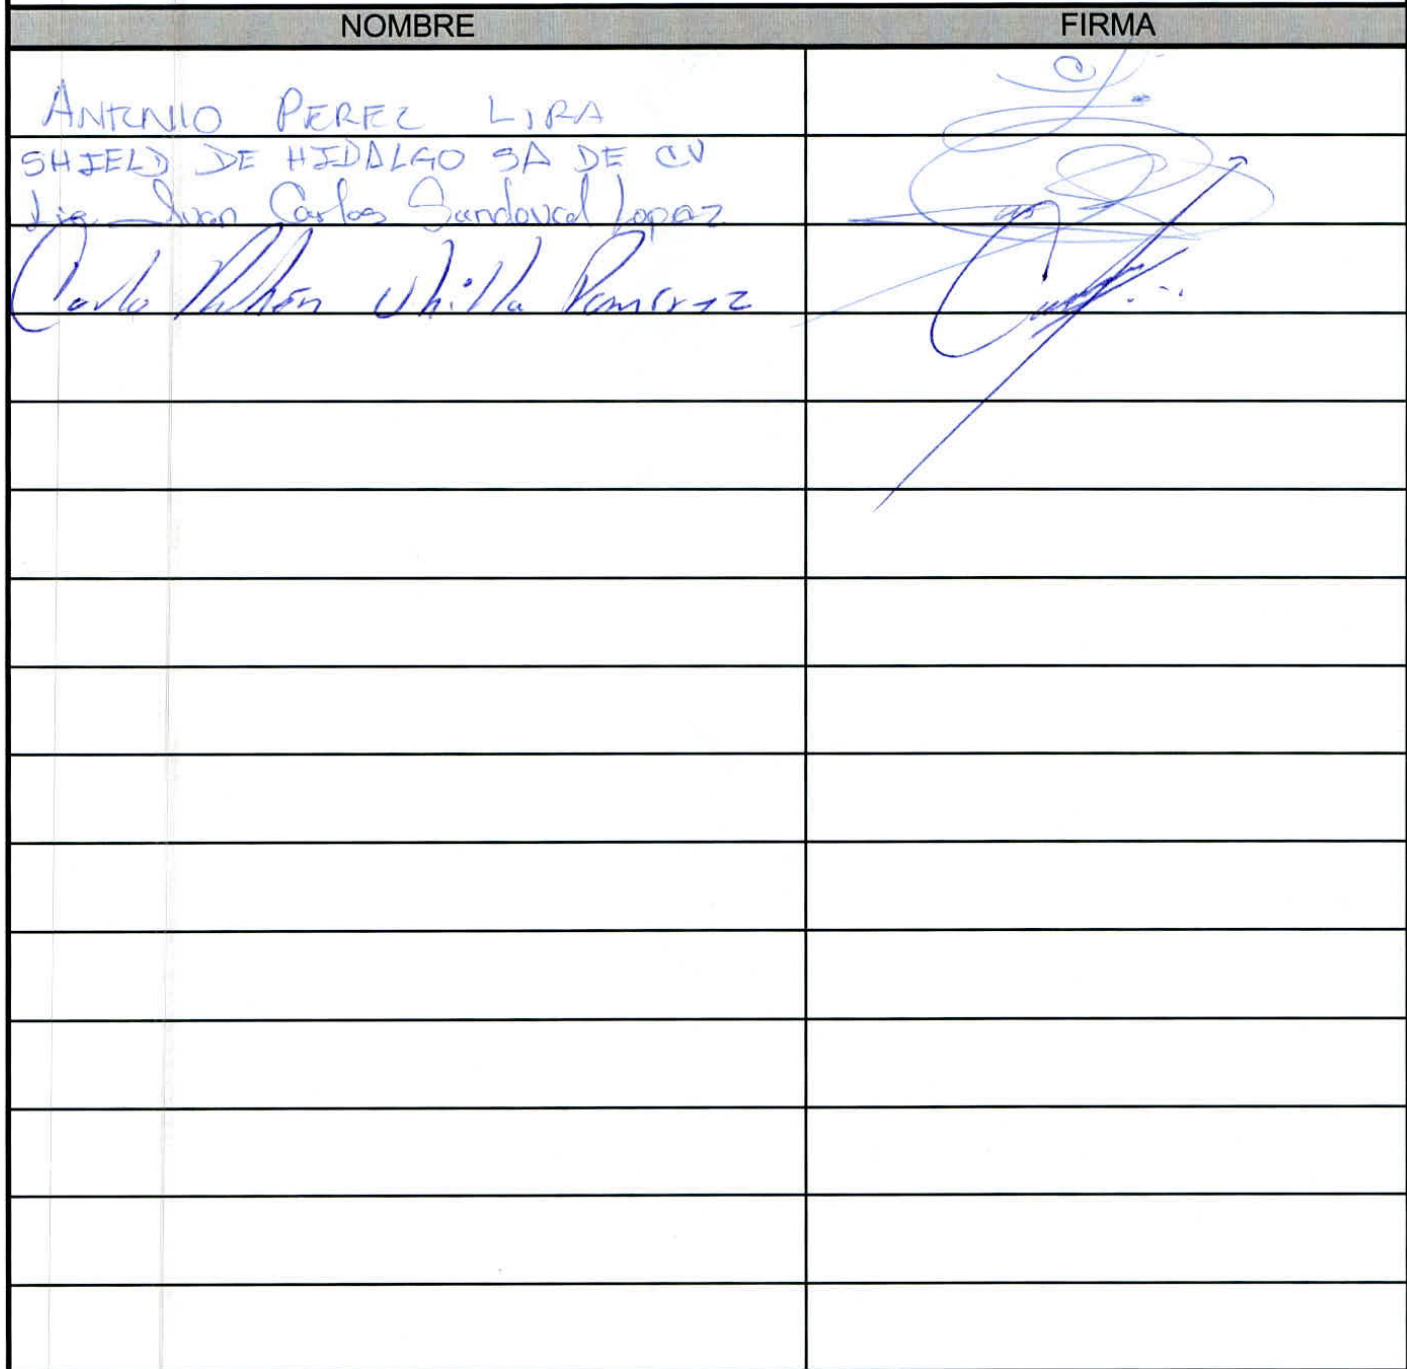 NOMBRE FIRMA
ANTONIO PEREZ LIRA
SHIELD DE HIDALGO SA DE CV
Lic. Juan Carlos Sandoval Lopez
Carlo Ramirez